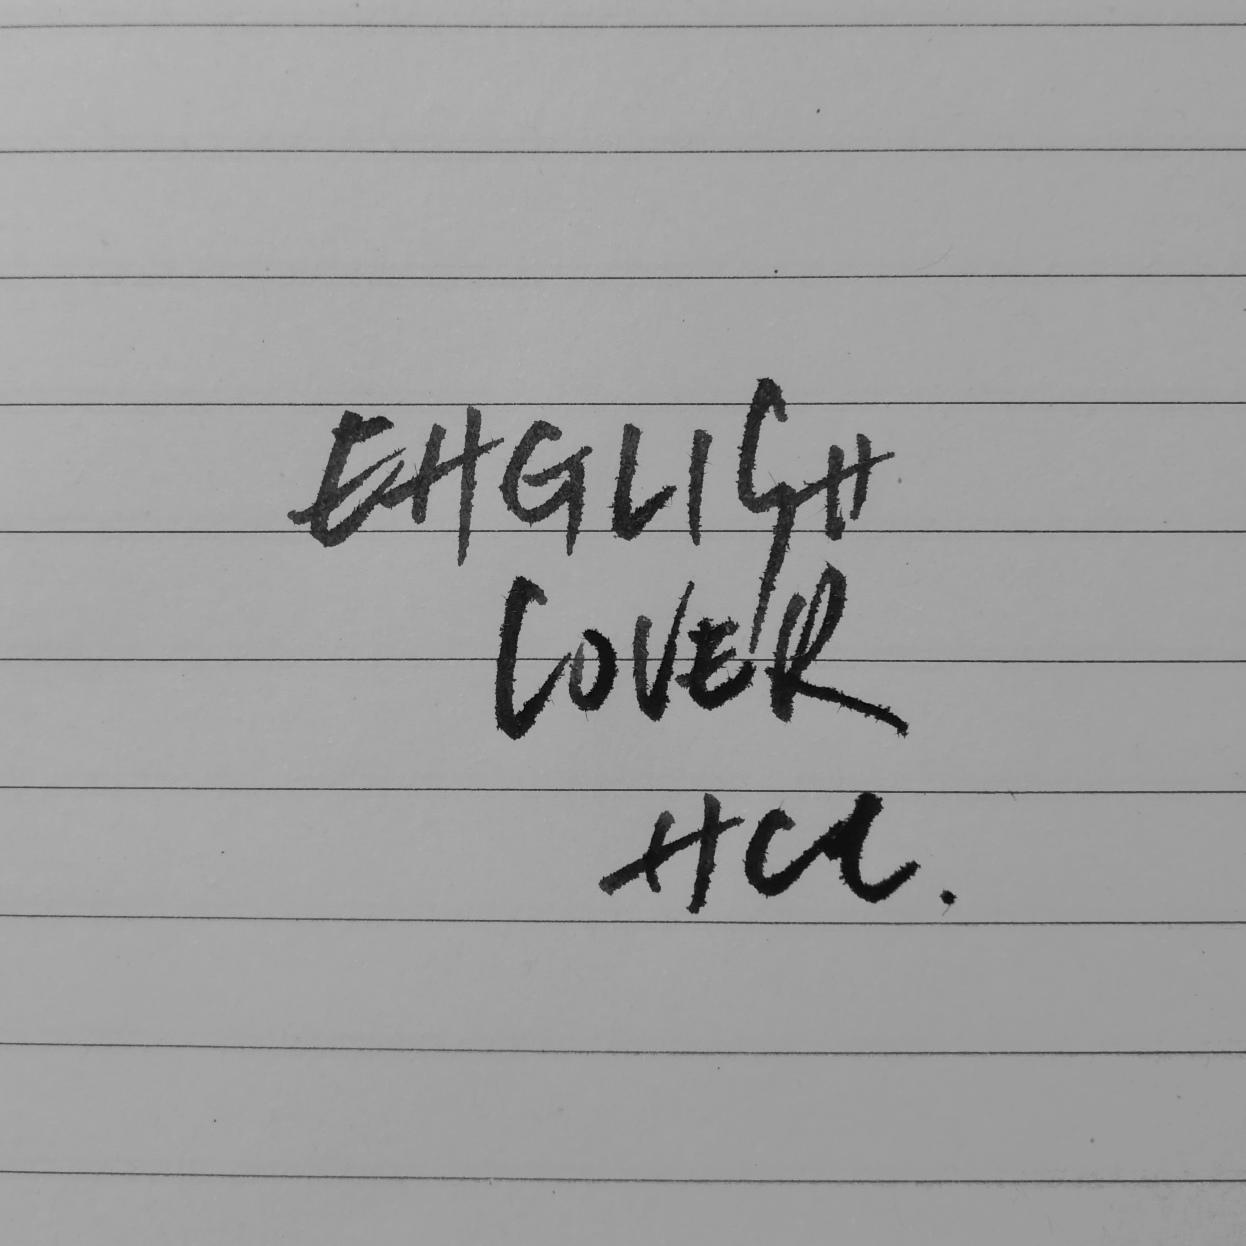 ENGLISH
COVER
HCL.